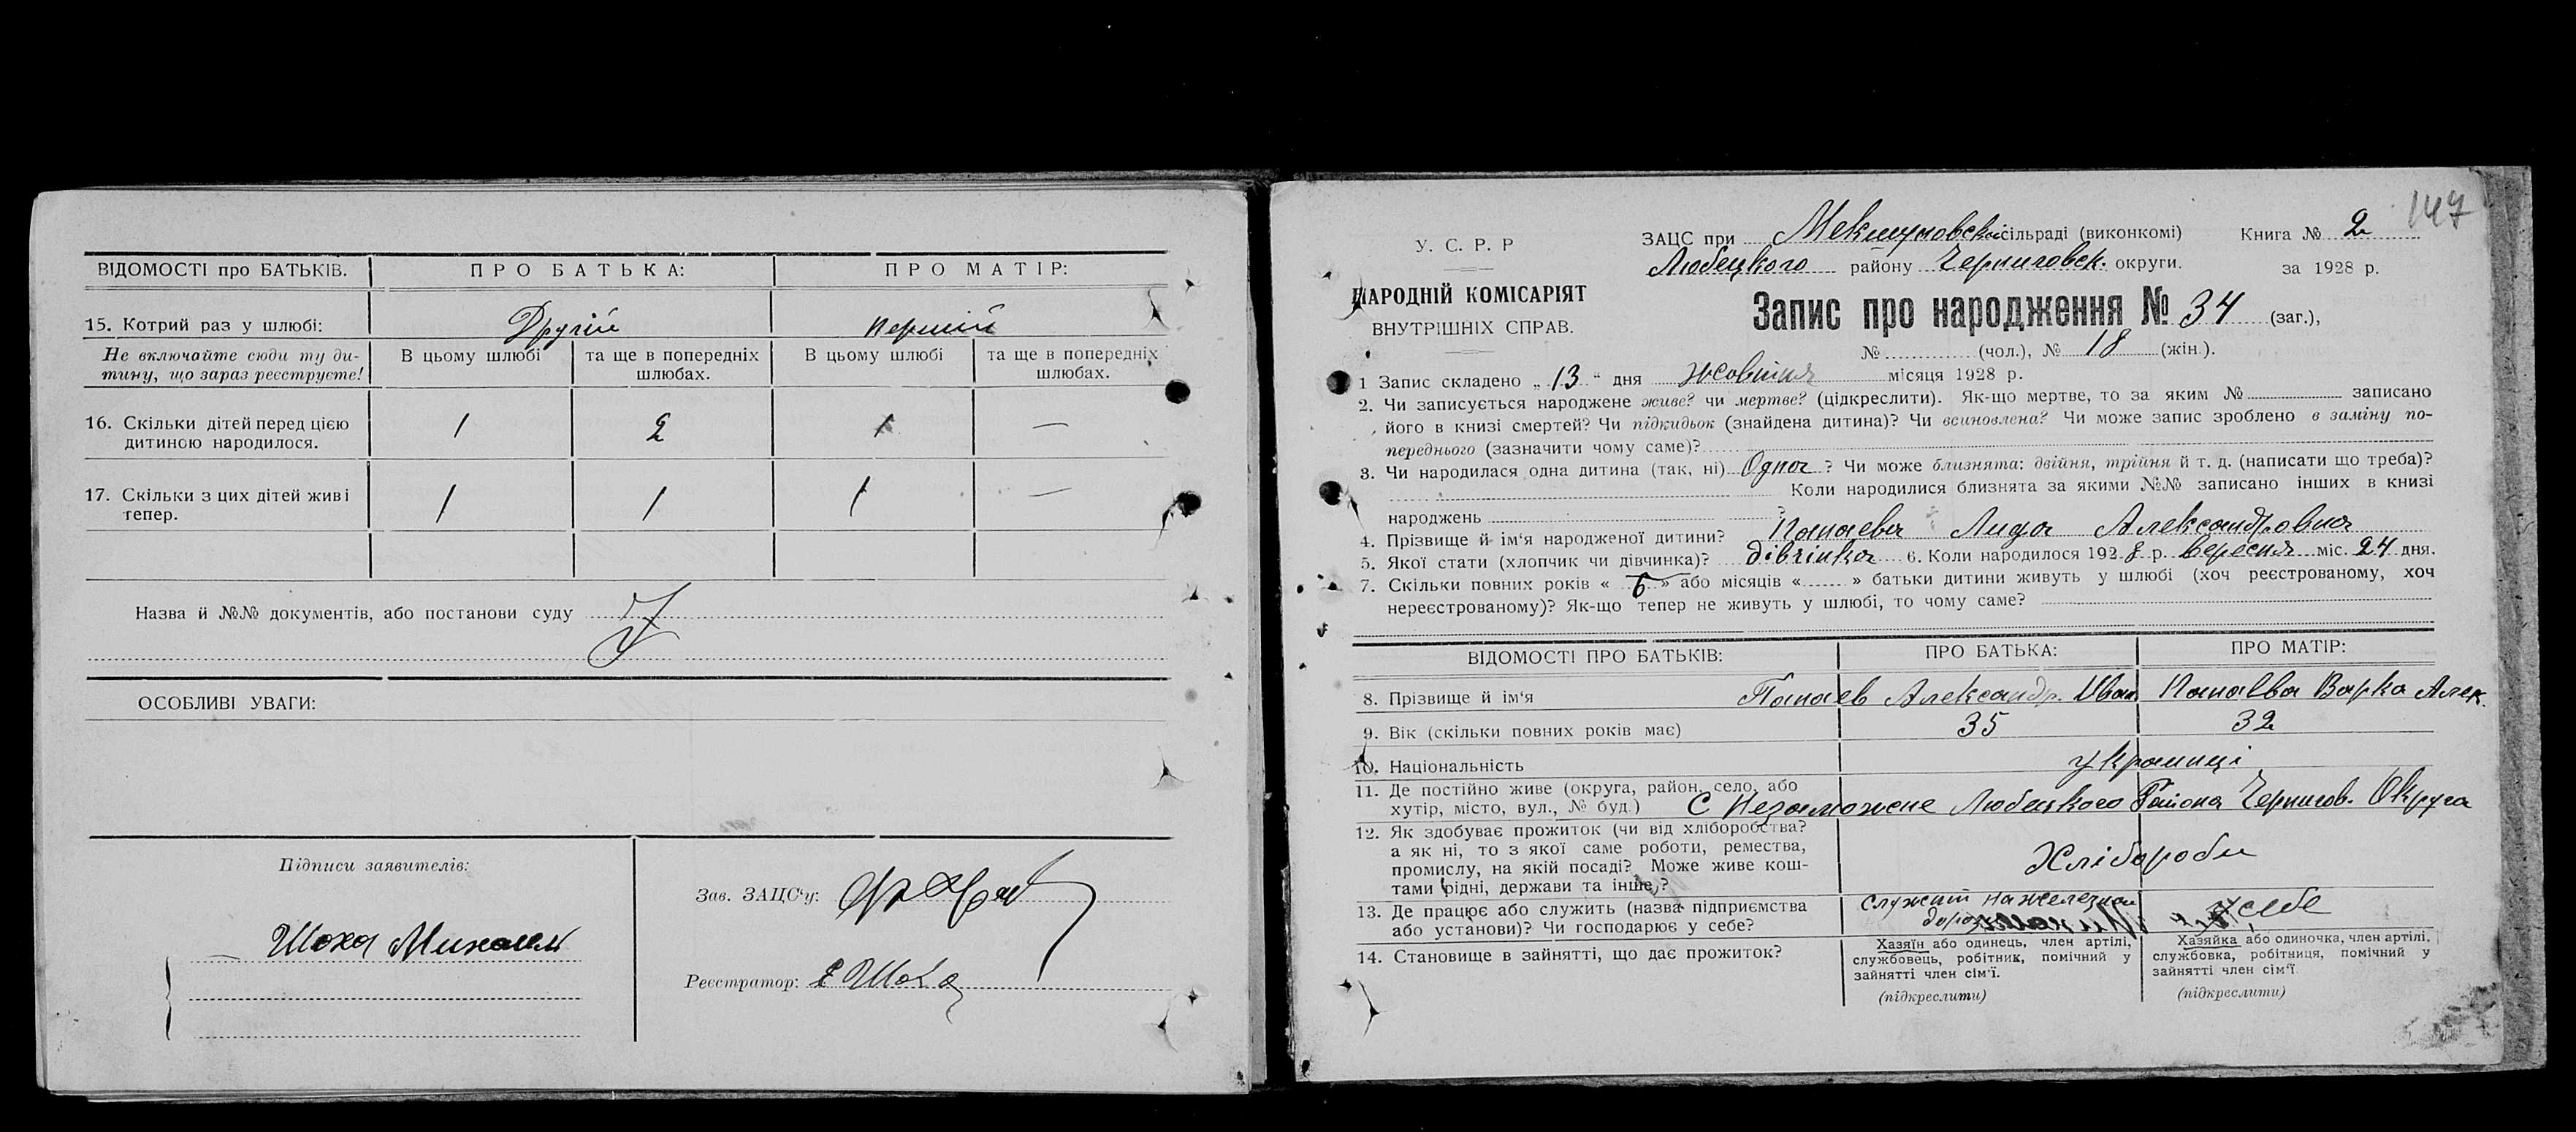 ВІДОМОСТІ про БАТЬКІВ. ПРО БАТЬКА: ПРО МАТІР:
15. Котрий раз у шлюбі: Другій перший
Не включайте сюди ту ди- В цьому шлюбі та ще в попередніх В цьому шлюбі та ще в попередніх
тину, що зараз реєструєте! шлюбах. шлюбах.
16. Скільки дітей перед цією 1 2 1 —
дитиною народилося.
17. Скільки з цих дітей живі 1 1 1 —
тепер.
Назва й №№ документів, або постанови суду
ОСОБЛИВІ УВАГИ:
Підписи заявителів:
Шоха Михаил
Зав. ЗАЦС'у:
Реєстратор: Шоха
147
У. С. Р. Р
НАРОДНІЙ КОМІСАРІЯТ
ВНУТРІШНІХ СПРАВ.
ЗАЦС при сільраді (виконкомі) Книга № 2
Любецкого району Черниговск. округи. за 1928 р.
Запис про народження № 34 (заг.),
№ (чол.), № 18 (жін.).
1 Запис складено „ 13 “ дня жовтня місяця 1928 р.
2. Чи записується народжене живе? чи мертве? (підкреслити). Як-що мертве, то за яким № записано
його в книзі смертей? Чи підкидьок (знайдена дитина)? Чи всиновлена? Чи може запис зроблено в заміну по-
переднього (зазначити чому саме)?
3. Чи народилася одна дитина (так, ні) Одна ? Чи може близнята: двійня, трійня й т. д. (написати що треба)?
Коли народилися близнята за якими №№ записано інших в книзі
народжень ?
4. Прізвище й ім'я народженої дитини? Папаева Лида Александровна
5. Якої стати (хлопчик чи дівчинка)? дівчінка 6. Коли народилося 1928 р. Вересня міс. 24 дня.
7. Скільки повних років « 6 » або місяців « » батьки дитини живуть у шлюбі (хоч реєстрованому, хоч
нереєстрованому)? Як-що тепер не живуть у шлюбі, то чому саме?
ВІДОМОСТІ ПРО БАТЬКІВ: ПРО БАТЬКА: ПРО МАТІР:
8. Прізвище й ім'я Папаев Александр. Иван Папаева Варка Алек.
9. Вік (скільки повних років має) 35 32
10. Національність украинці
11. Де постійно живе (округа, район, село, або
хутір, місто, вул., № буд.) С Незаможне Любецкого Района Чернигов. Округа
12. Як здобуває прожиток (чи від хліборобства?
а як ні, то з якої саме роботи, ремества,
промислу, на якій посаді? Може живе кош-
тами рідні, держави та інше,? Хлібороби
13. Де працює або служить (назва підприємства служит на железной
або установи)? Чи господарює у себе? у себе
14. Становище в зайнятті, що дає прожиток? Хазяїн або одинець, член артілі, Хазяйка або одиночка, член артілі,
службовець, робітник, помічний у службовка, робітниця, помічний у
зайнятті член сім'ї. зайнятті член сім'ї
(підкреслити) (підкреслити)